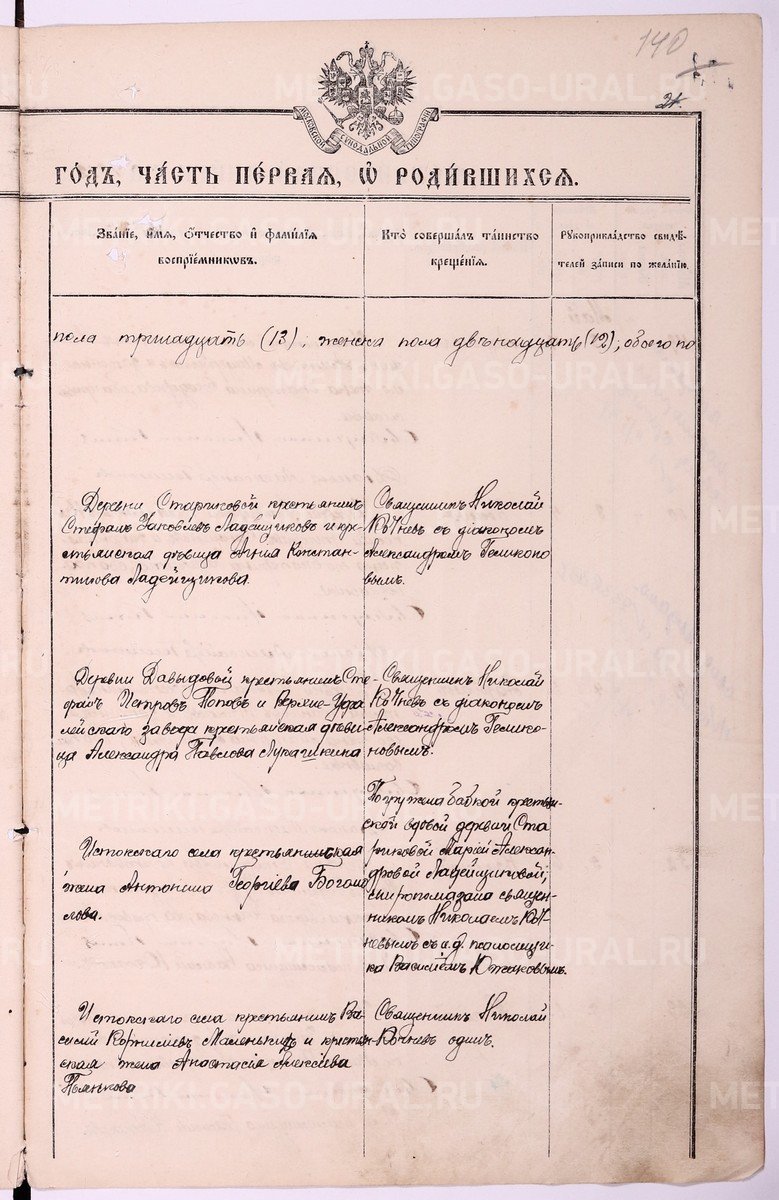 140
21.
МОСКОВСКОЙ СѴНОДАЛЬНОЙ ТИПОГРАФІИ
ГОДЪ, ЧАСТЬ ПЕРВАЯ, Ѡ РОДИВШИХСЯ.
Званіе, имя, отчество и фамилія
воспріемниковъ.
Кто совершалъ таинство
крещенія.
Рукоприкладство свидѣ-
телей записи по желанію.
пола тринадцать (13), женска пола двѣнадцать (12), обоего по
Деревни Стариковой крестьянинъ
Стефанъ Яковлевъ Ладейщиковъ и кре-
стьянская дѣвица Агнія Констан-
тинова Ладейщикова.
Священникъ Николай
Кочневъ съ діакономъ
Александромъ Геликоно
вымъ.
Деревни Давыдовой крестьянинъ Сте-
фанъ Петровъ Поповъ и Верхне-Уфа
лейскаго завода крестьянская дѣви-
ца Александра Павлова Лукашкина
Священникъ Николай
Кочневъ съ діакономъ
Александромъ Гелико-
новымъ.
Истокскаго села крестьянская
жена Антонина Георгіева Богоме
слова.
Погружена бабкой крестьян-
ской вдовой деревни Ста
риковой Маріей Алексан-
дровой Ладейщиковой;
миропомазана священ-
никомъ Николаемъ Коч-
невымъ съ и.д. псаломщи-
ка Василіемъ Южаковымъ.
Истокскаго села крестьянинъ Ва-
силій Корниліевъ Маленькихъ и крестьян-
ская жена Анастасія Алексіева
Пьянкова
Священникъ Николай
Кочневъ одинъ.
METRIKI.GASO-URAL.RU